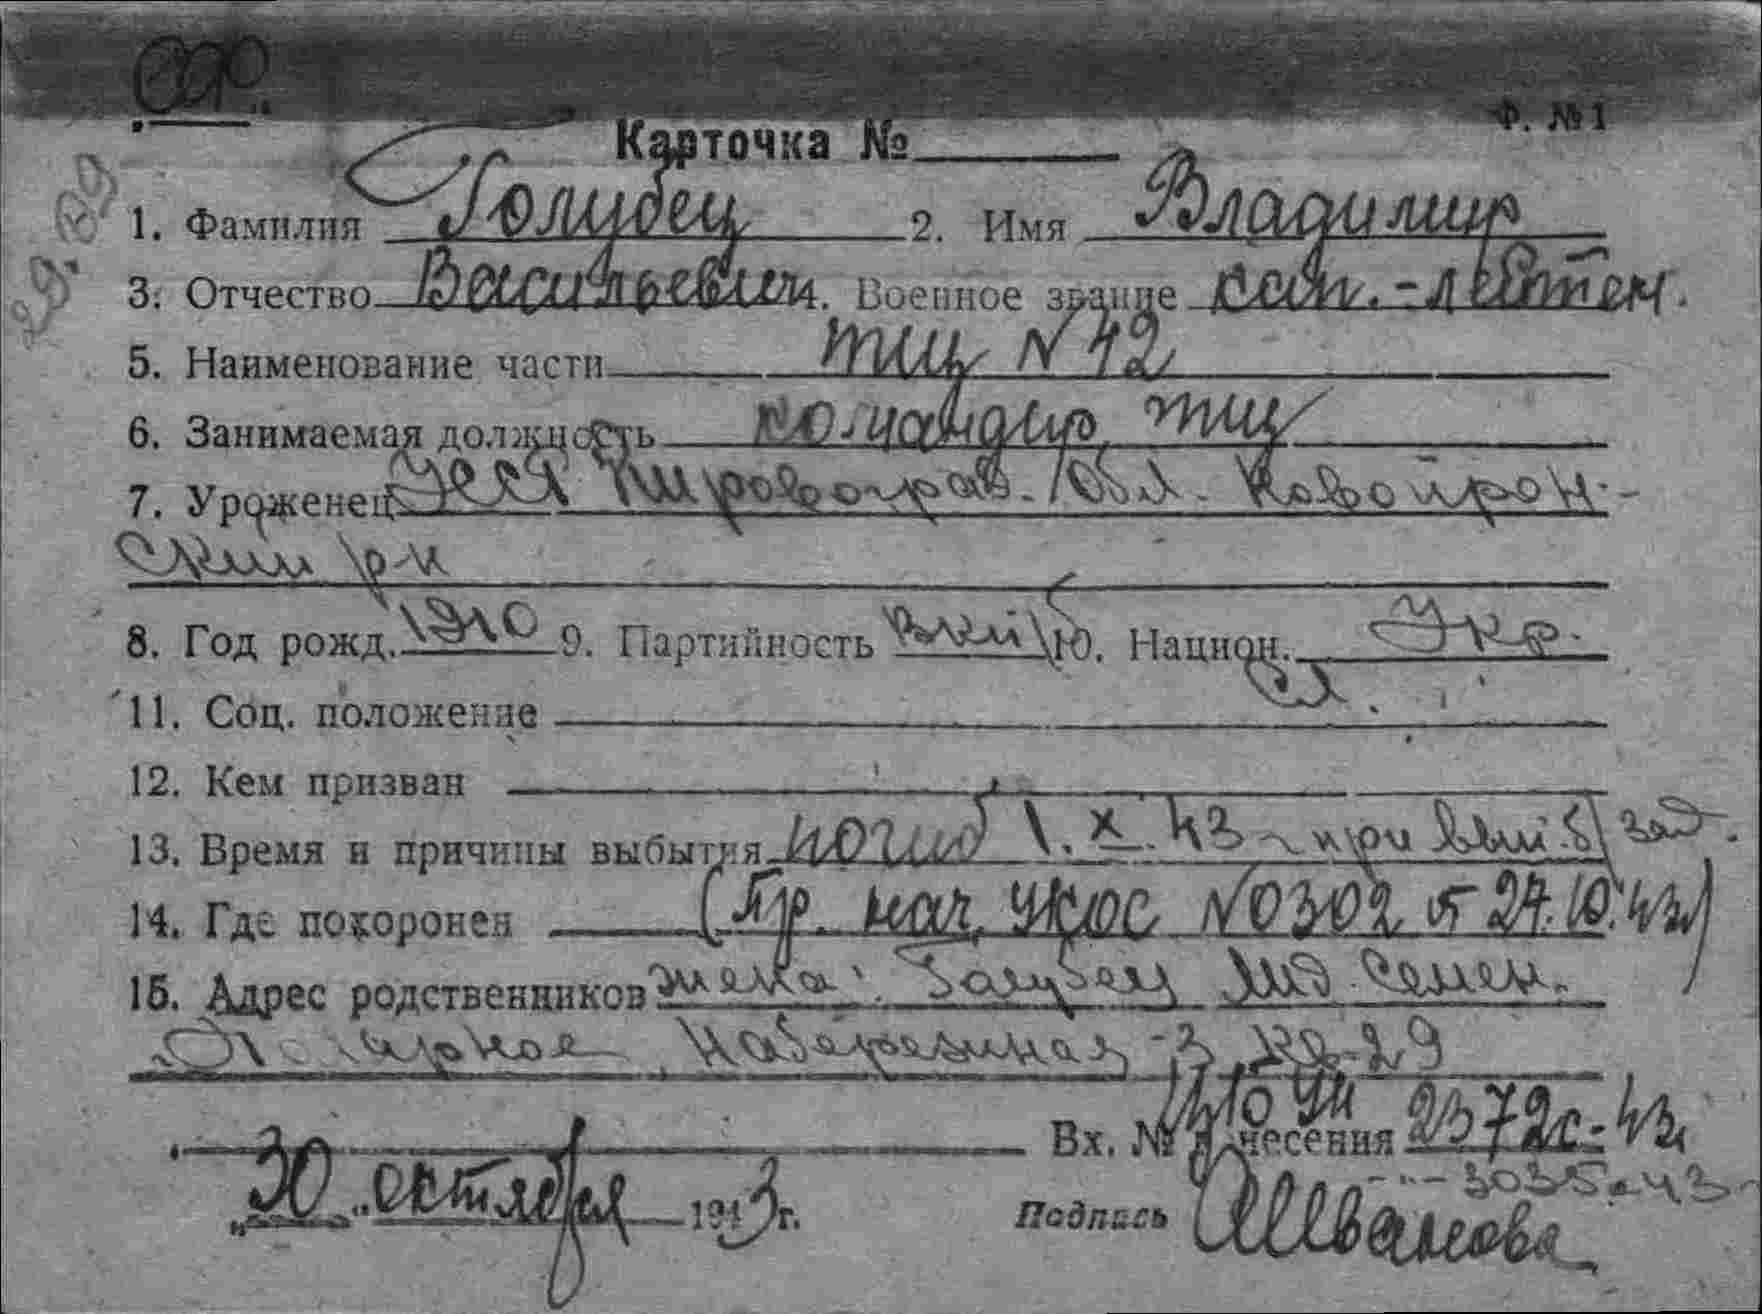 Ф. №1
Карточка №
1. Фамилия Голубец 2. Имя Владимир
3. Отчество Васильевич 4. Военное звание кап.-лейтен.
5. Наименование части тщ N 42
6. Занимаемая должность командир тщ
7. Уроженец УССР Кировоград. Обл.
ский р-н
8. Год рожд. 1910 9. Партийность ВКП/б 10. Национ. Укр.
11. Соц. положение сл.
12. Кем призван
13. Время и причины выбытия погиб 1.X.43 г при вып. б/зад.
14. Где похоронен (Пр. нач. УКОС N 0302 от 27.10.43г)
15. Адрес родственников жена: Голубец Лид. Семен.
Полярное, Набережная-3 кв-29
Вх. № донесения 2372с-43г
-"- 3035с-43г
„30“ октября 1943г. Подпись